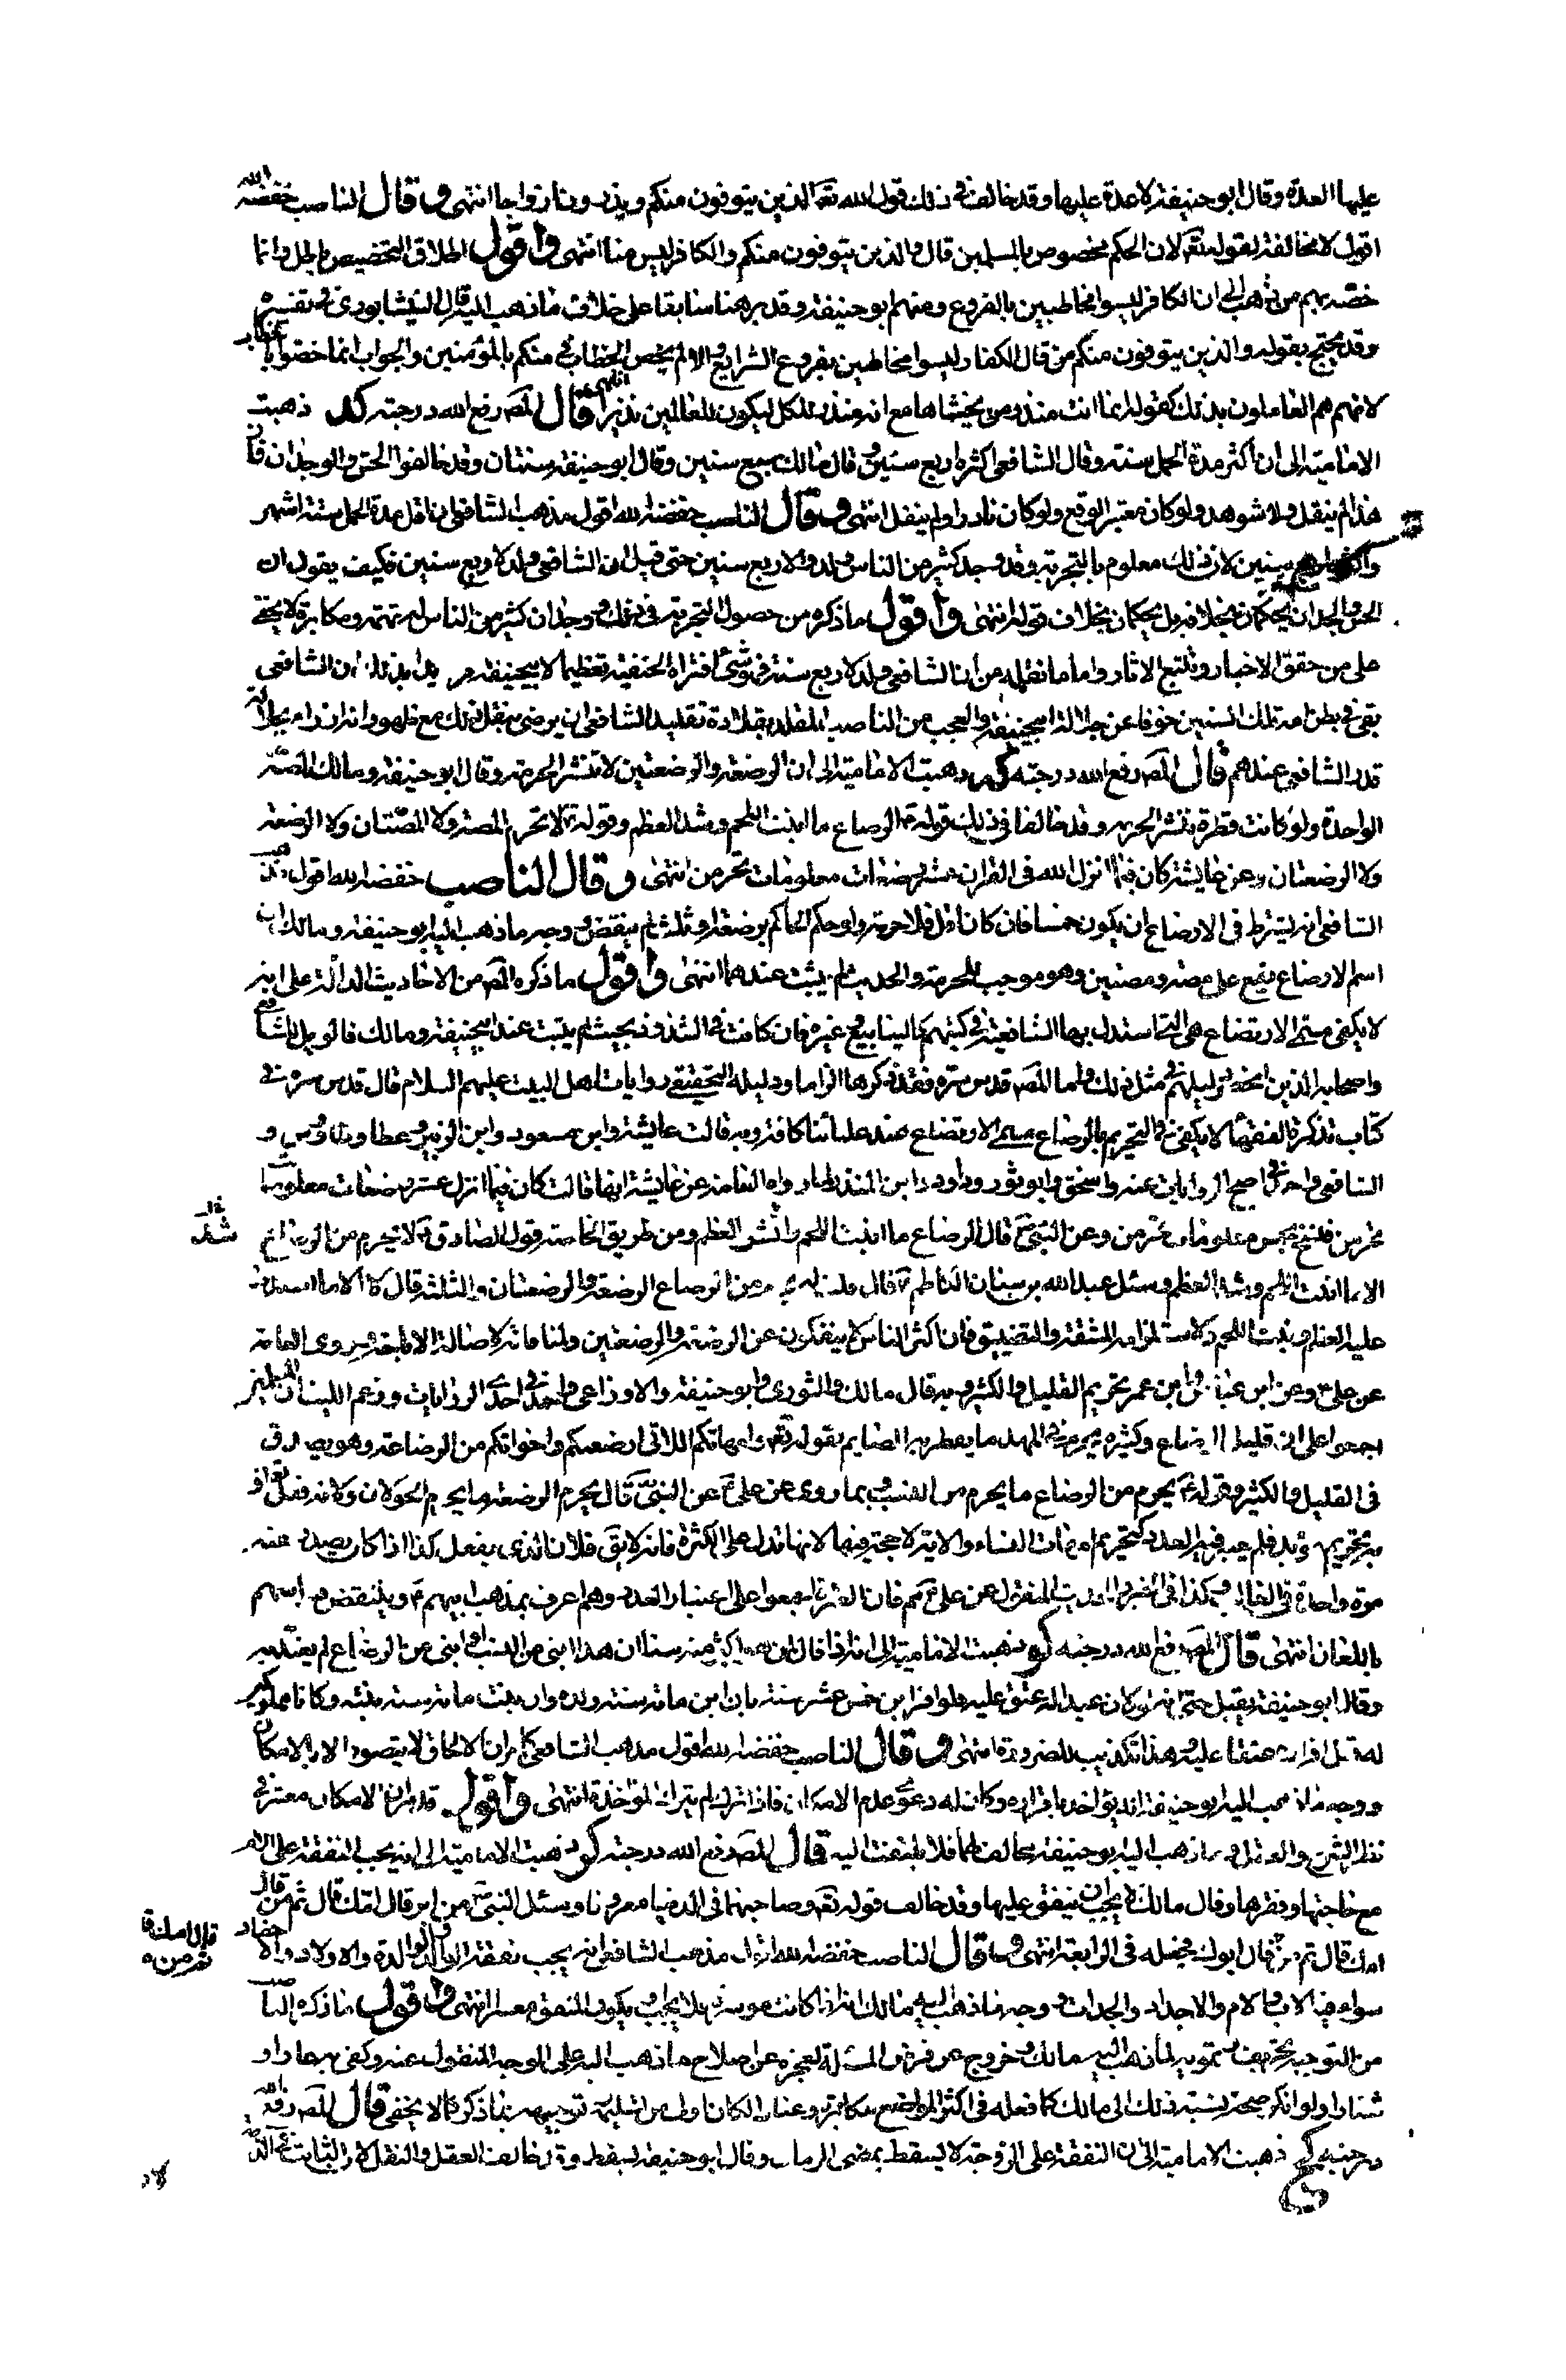 عليها العدة وقال ابو حنيفة لا عدة عليها وقد خالف في ذلك قول الله تعالى الذين يتوفون منكم ويذرون ازواجا انتهى وقال الناصب خفضه الله
اقول لا مخالفة لقوله تعالى لان الحكم مخصوص بالمسلمين قال والذين يتوفون منكم والكافر ليس منا انتهى واقول اطلاق التخصيص باطل وانما
خصه بهم من ذهب الى ان الكافر ليسوا مخاطبين بالفروع ومنهم ابو حنيفة وقد برهنا سابقا على خلاف ما ذهب اليه قال النيشابوري في تفسيره
وقد يحتج بقوله والذين يتوفون منكم من قال الكفار ليسوا مخاطبين بفروع الشرايع والا لم يخص الخطاب في منكم بالمؤمنين والجواب انما خصوا بالخطاب
لانهم هم العاملون بذلك كقوله انما انت منذر من يخشاها مع انه منذر للكل ليكون للعالمين نذيرا انتهى قال المص رفع الله درجته كد ذهبت
الامامية الى ان اكثر مدة الحمل سنة وقال الشافعي اكثره اربع سنين وقال مالك سبع سنين وقال ابو حنيفة سنتان وقد خالفوا الحس والوجدان فان
هذا لم ينقل ولا شوهد ولو كان معتبر الوقع ولو كان نادرا ولم ينقل انتهى وقال الناصب خفضه الله اقول مذهب الشافعي ان اقل مدة الحمل ستة اشهر
واكثره اربع سنين لان ذلك معلوم بالتجربة وقد وجد كثير من الناس ولدوا لاربع سنين حتى قيل ان الشافعي ولد لاربع سنين فكيف يقول ان
الحس والوجدان يحكمان بخلافه بل يحكمان بخلاف قوله انتهى واقول ما ذكره من حصول التجربة في ذلك ووجدان كثير من الناس له تهمة ومكابرة لا يخفى
على من حقق الاخبار وتتبع الاثار واما ما نقله من ان الشافعي ولد لاربع سنة فهو شئ افتراه الحنفية تعظيما لابيحنيفة ان الشافعي
بقي في بطن امه تلك السنين خوفا عن جلالة ابيحنيفة والعجب من الناصب المقلد بقلادة تقليد الشافعي ان يرضى بنقل ذلك مع ظهور انه ازراء بجلالة
قدر الشافعي عندهم قال المص رفع الله درجته كه ذهبت الامامية الى ان الرضعة والرضعتين لا تنشر الحرمة وقال ابو حنيفة ومالك المصة
الواحدة ولو كانت قطرة تنشر الحرمة وقد خالفا في ذلك قوله الرضاع ما انبت اللحم وشد العظم وقوله لا تحرم المصة ولا المصتان ولا الرضعة
ولا الرضعتان وعن عايشة كان فيما انزل الله في القران عشر رضعات معلومات تحرمن انتهى وقال الناصب خفضه الله اقول مذهب
الشافعي انه يشترط في الارضاع ان يكون خمسا فان كان اقل فلا حرمة ولو حكم الحاكم برضعة او ثلث لم ينقض ووجه ما ذهب اليه ابو حنيفة ومالك ان
اسم الارضاع يقع على مصة ومصتين وهو موجب للحرمة والحديث لم يثبت عندهما انتهى واقول ما ذكره المص من الاحاديث الدالة على انه
لا يكفي مسمى الارتضاع هي التي استدل بها الشافعية في كتبهم كالينابيع وغيره فان كانت في الشذوذ بحيث لم يثبت عند ابيحنيفة ومالك فالويل للشافعي
واصحابه الذين دليلهم في مثل ذلك واما المص قدس سره فقد ذكرها الزاما ودليله التحقيقي روايات اهل البيت عليهم السلام قال قدس سره في
كتاب تذكرة الفقهاء لا يكفي في التحريم بالرضاع مسمى الارتضاع عند علمائنا كافة وبه قالت عايشة وابن مسعود وابن الزبير وعطا وطاوس و
الشافعي واحمد في اصح الروايات عنه واسحق وابو ثور وداود وابن المنذر لما رواه العامة عن عايشة انها قالت كان فيما انزل عشر رضعات معلومات
تحرمن فنسخ بخمس معلومات تحرمن وعن النبي قال الرضاع ما انبت اللحم وانشز العظم ومن طريق الخاصة قول الصادق لا يحرم من الرضاع
الا ما انبت اللحم وشد العظم وسئل عبد الله بن سنان الكاظم قال قلت له يحرم من الرضاع الرضعة والرضعتان والثلثة قال لا الا ما اشتد
عليه العظم ونبت اللحم ولاستلزامه المشقة والتضييق فان اكثر الناس لا ينفكون عن الرضعة والرضعتين ولنا ما تر لاصالة الاباحة وروى العامة
عن علي وعن ابن عباس وابن عمر تحريم القليل والكثير وبه قال مالك والثوري وابو حنيفة والاوزاعي واحمد في احدى الروايات وزعم الليث ان المسلمين
اجمعوا على ان قليل الرضاع وكثيره يحرم في المهد ما يفطر به الصايم بقوله تعالى وامهاتكم اللاتي ارضعنكم واخواتكم من الرضاعة وهو يصدق
في القليل والكثير وقوله يحرم من الرضاع ما يحرم من النسب وبما روى عن علي عن النبي قال يحرم الرضعة ما يحرم الحولان ولانه فعل تعلق
به تحريم مؤبد فلم يعتبر فيه العدد كتحريم امهات النساء والاية لا حجة فيها لانها تدل على الكثرة فانه لا يق فلان الذي يفعل كذا اذا كان يصدر عنه
مرة واحدة في الغالب وكذا في الخبر والحديث المنقول عن علي فان العترة اجمعوا على اعتبار العدد وهم اعرف بمذهب ابيهم وينتقض
باللعان انتهى قال المص رفع الله درجته كو ذهبت الامامية الى انه اذا قال لمن هو اكبر منه سنا ان هذا ابني من النسب او ابني من الرضاع لم يعتد به
وقال ابو حنيفة يقبل حتى انه لو كان عبدا له عتق عليه فلو اقر ابن خمس عشر سنة بان ابن مائة سنة ولده وان بنت مائة سنة بنته وكانا مملوكين
له قبل اقراره عتقا عليه وهذا تكذيب للضرورة انتهى وقال الناصب خفضه الله اقول مذهب الشافعي ان الالحاق لا يتصور الا بالامكان
ووجه ما ذهب اليه ابو حنيفة انه يؤاخذ باقراره وكان له دعوى عدم الامكان فاذا اقر لم يترك المؤاخذة انتهى واقول قد مر ان الامكان معتبر في
نظر الشرع والعقل وما ذهب اليه ابو حنيفة مخالف لهما فلا يلتفت اليه قال المص رفع الله درجته كز ذهبت الامامية الى انه يجب النفقة على الام
مع حاجتها وفقرها وقال مالك لا يجب ان ينفق عليها وقد خالف قوله تعالى وصاحبهما في الدنيا معروفا وسئل النبي من ابر قال امك قال ثم من قال
امك قال ثم من قال ابوك فجعله في الرابعة انتهى وقال الناصب خفضه الله اقول مذهب الشافعي انه يجب نفقة الوالد والوالدة والاولاد والاحفاد
سواء فيه الاب والام والاجداد والجدات ووجه ما ذهب اليه مالك انه اذا كانت موسرة فلا يجب او يكون المنفق معسرا انتهى واقول ما ذكره الناصب
من التوجيه تحريف وتمويه لما ذهب اليه مالك وخروج عن فرض المسئلة لعجزه عن اصلاح ما ذهب اليه على الوجه المنقول عنه وكفى به عارا و
شنارا ولو انكر صحة نسبة ذلك الى مالك كما فعله في اكثر المواضع مكابرة وعنادا لكان اولى من توجيهه بما ذكره كما لا يخفى قال المص رفع الله
درجته كح ذهبت الامامية الى ان النفقة على الزوجة لا يسقط بمضي الزمان وقال ابو حنيفة يسقط وقد خالف العقل والنقل لان الثابت في الذمة
قال امك قال
ثم من